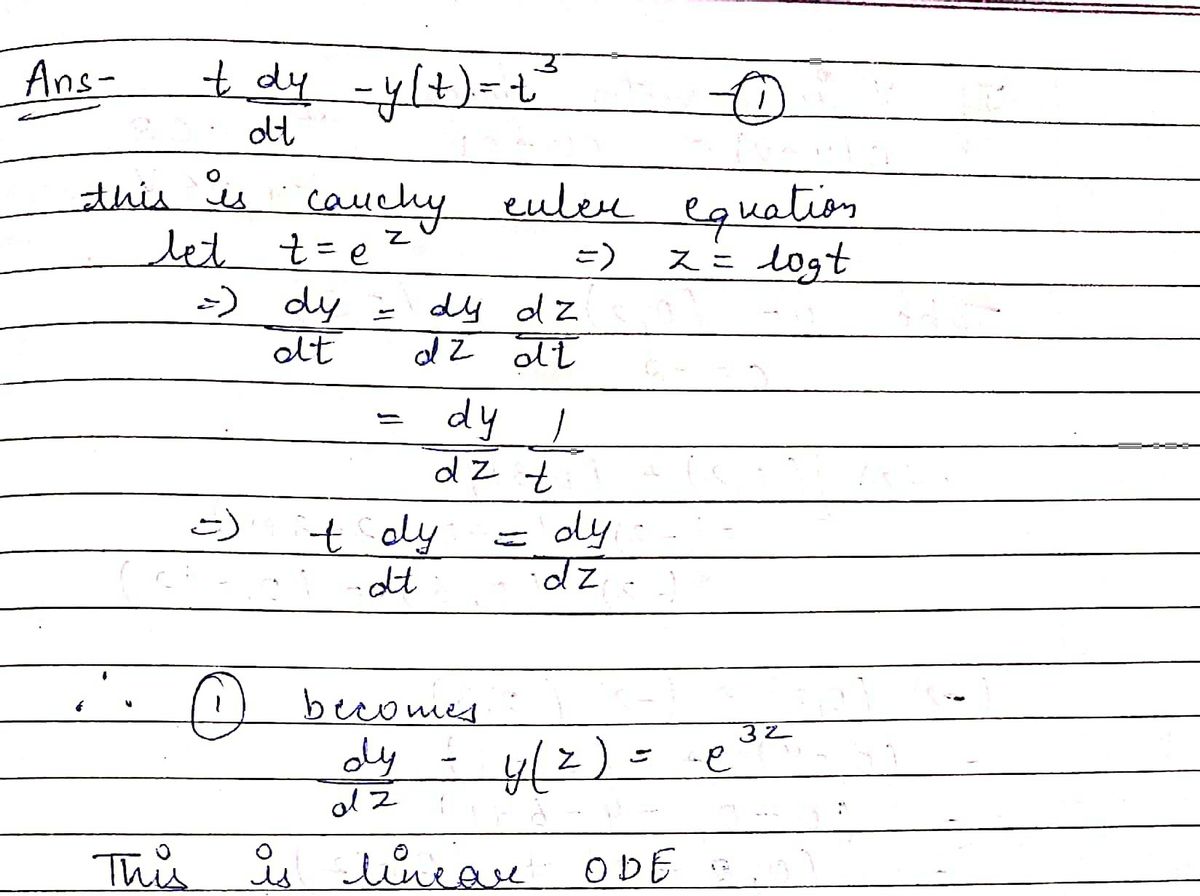 Ans- t dy/dt - y(t) = t^3 - (i)
this is cauchy euler equation
let t = e^z => z = log t
=> dy/dt = dy/dz dz/dt
= dy/dz 1/t
=> t dy/dt = dy/dz
∴ (i) becomes
dy/dz - y(z) = e^3z
This is linear ODE